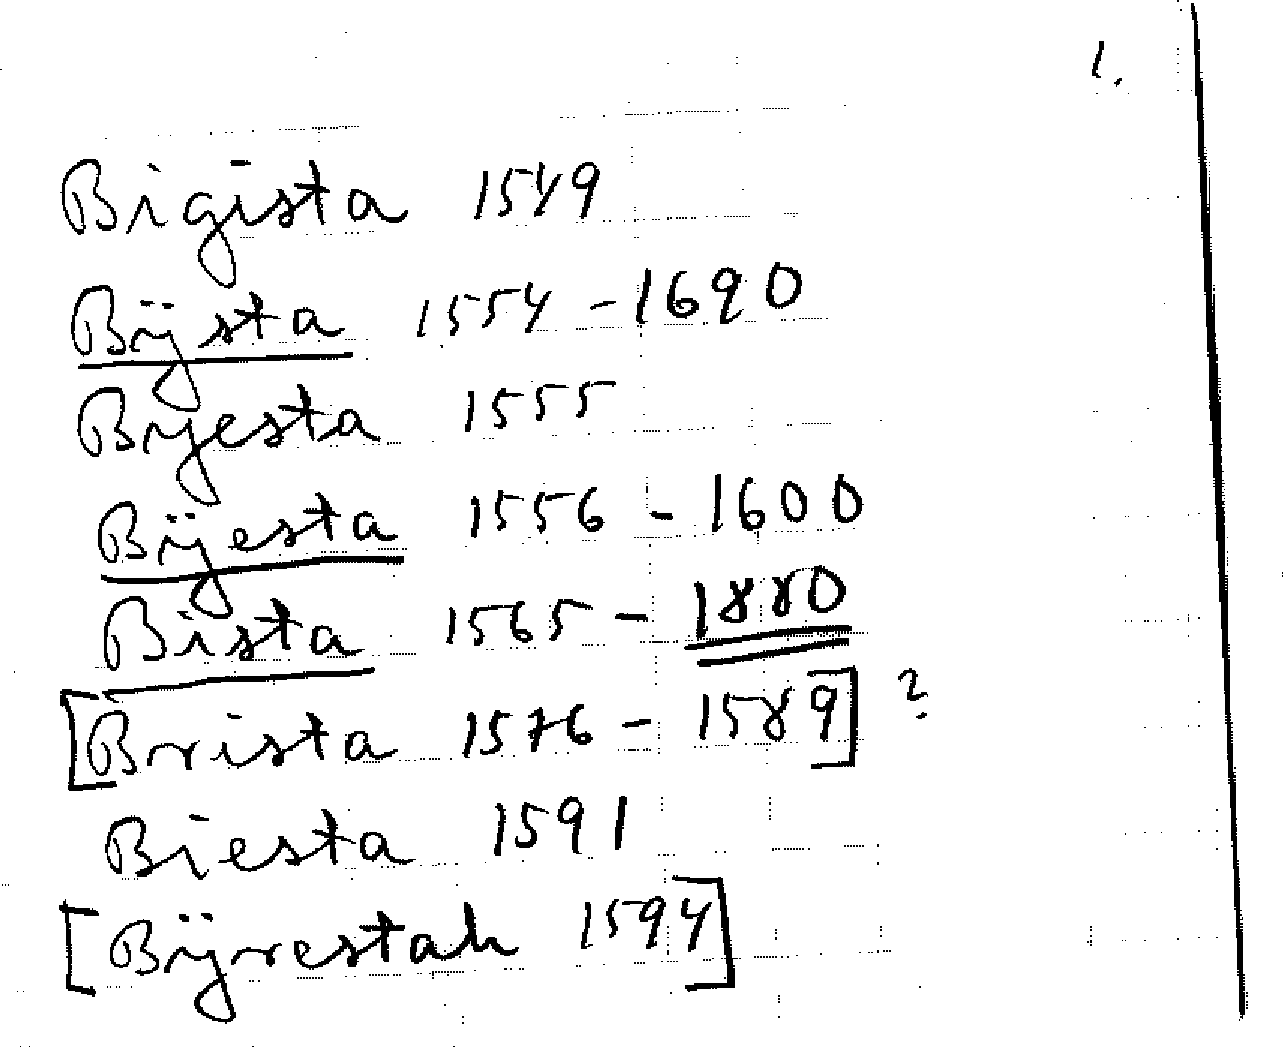 1.
Bigista 1549
Bijsta 1554 - 1690
Byesta 1555
Bijesta 1556 - 1600
Bista 1565 - 1880
[Brista 1576 - 1589] ?
Biesta 1591
[Bijrestah 1594]